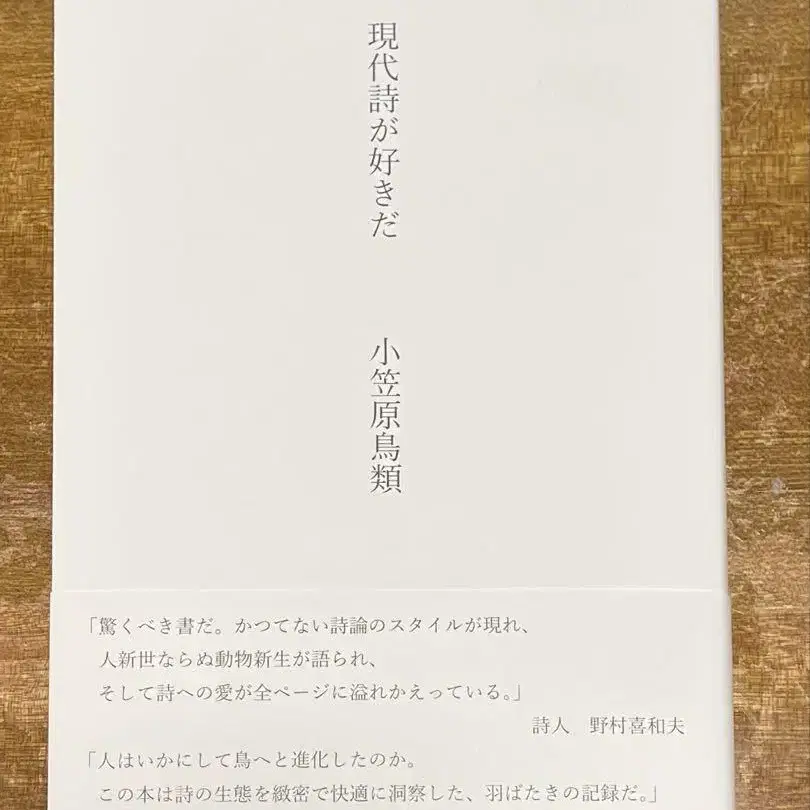 現代詩が好きだ
小笠原鳥類
「驚くべき書だ。かつてない詩論のスタイルが現れ、
人新世ならぬ動物新生が語られ、
そして詩への愛が全ページに溢れかえっている。」
詩人　野村喜和夫
「人はいかにして鳥へと進化したのか。
この本は詩の生態を緻密で快適に洞察した、羽ばたきの記録だ。」